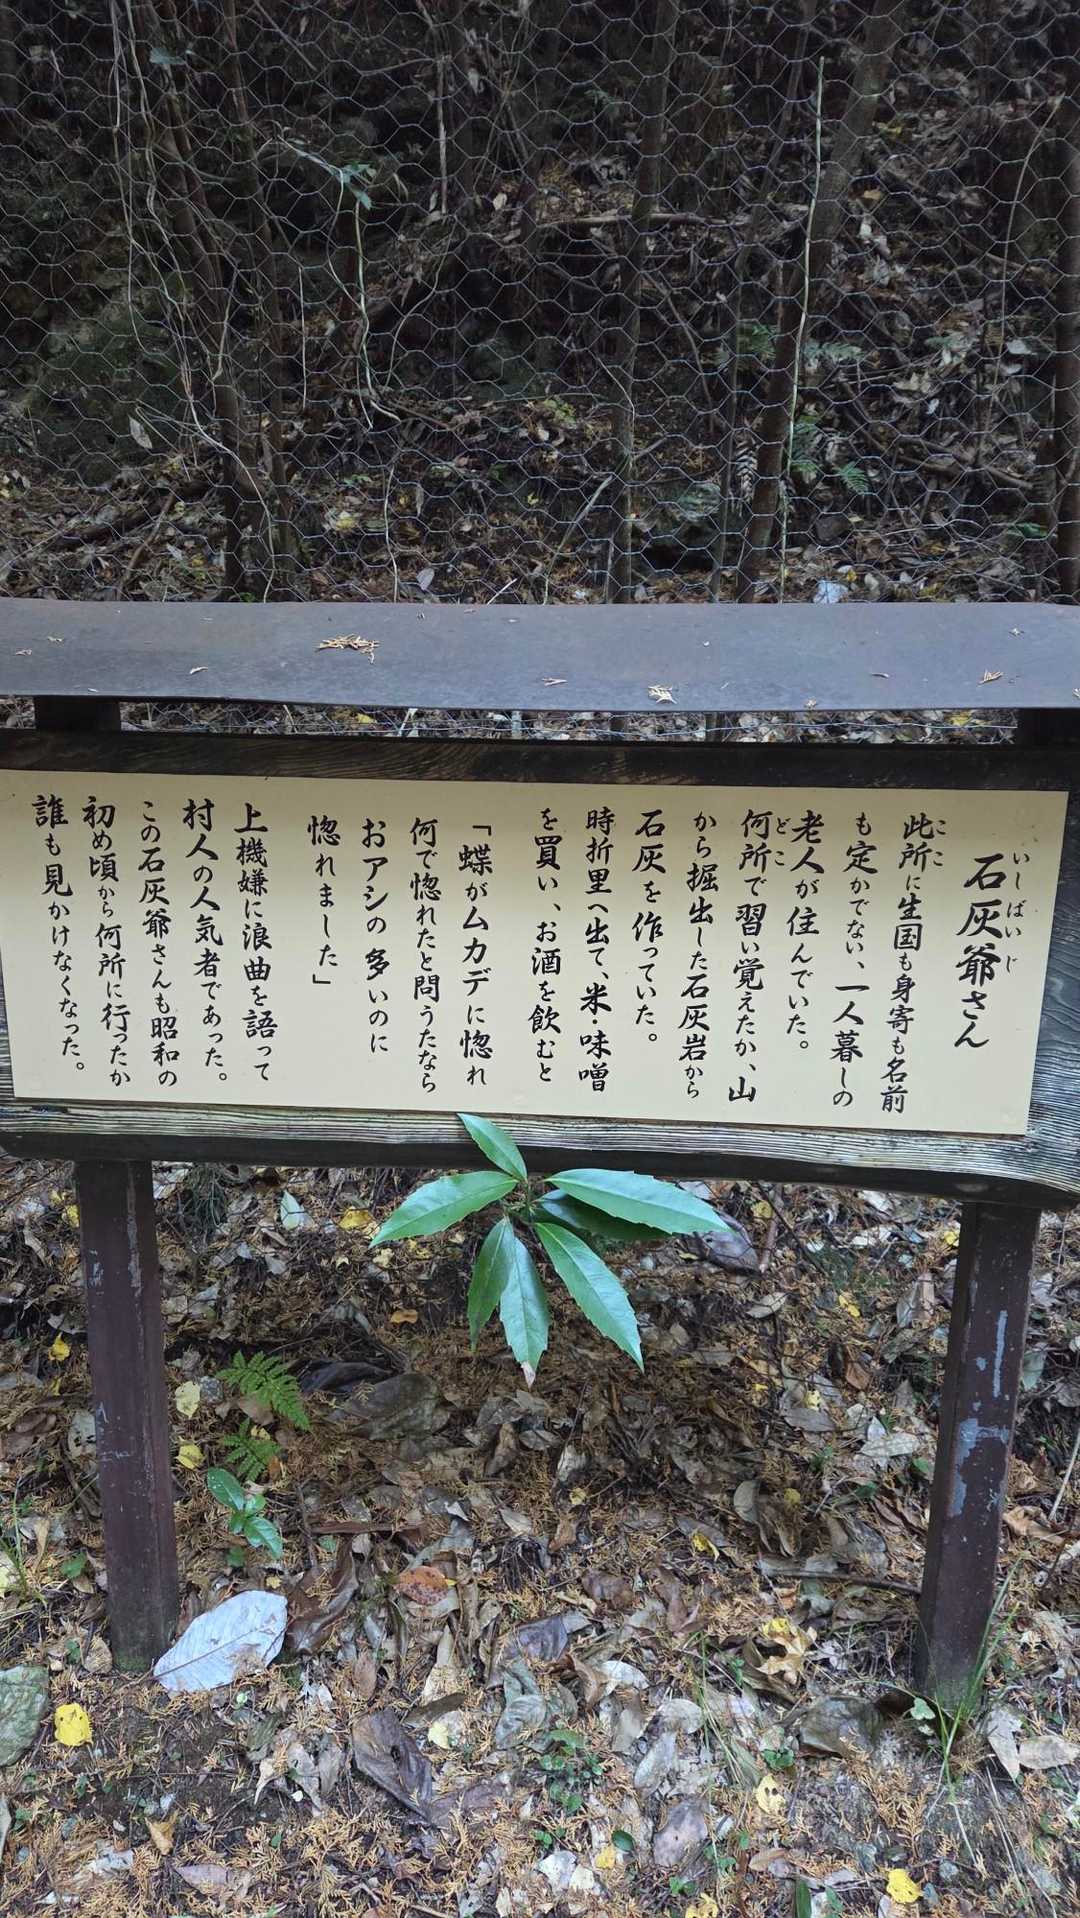 石灰爺さん
いしばいじ
此所に生国も身寄も名前
ここ
も定かでない、一人暮しの
老人が住んでいた。
何所で習い覚えたか、山
どこ
から掘出した石灰岩から
石灰を作っていた。
時折里へ出て、米・味噌
を買い、お酒を飲むと
「蝶がムカデに惚れ
何で惚れたと問うたなら
おアシの多いのに
惚れました」
上機嫌に浪曲を語って
村人の人気者であった。
この石灰爺さんも昭和の
初め頃から何所に行ったか
誰も見かけなくなった。